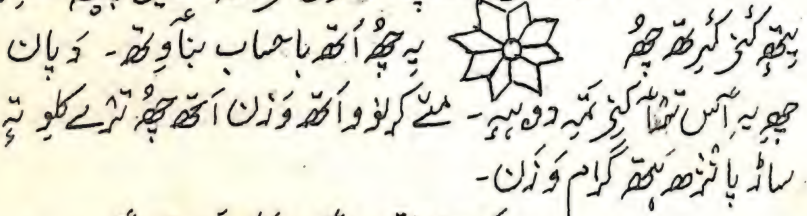 یتھٕ کٔنۍ کٔرتھ چھُ یہِ چھُ اَتھ باحساب بناوِتھ۔ دَپان
چھِ یہِ ٲس کٔنۍ تَمہِ دوہہٕ۔ مَتے کرنووا تھ وَزن اَتھ چھُ ترٛے کلو تہٕ
ساڈ پانٛژھ ہَتھ گرام وَزَن۔